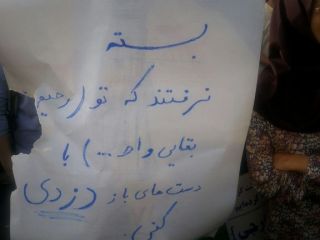 بسته
نرفتند که تو (رحیم
بقایی واحد...) با
دست های باز دزدی
کنی.